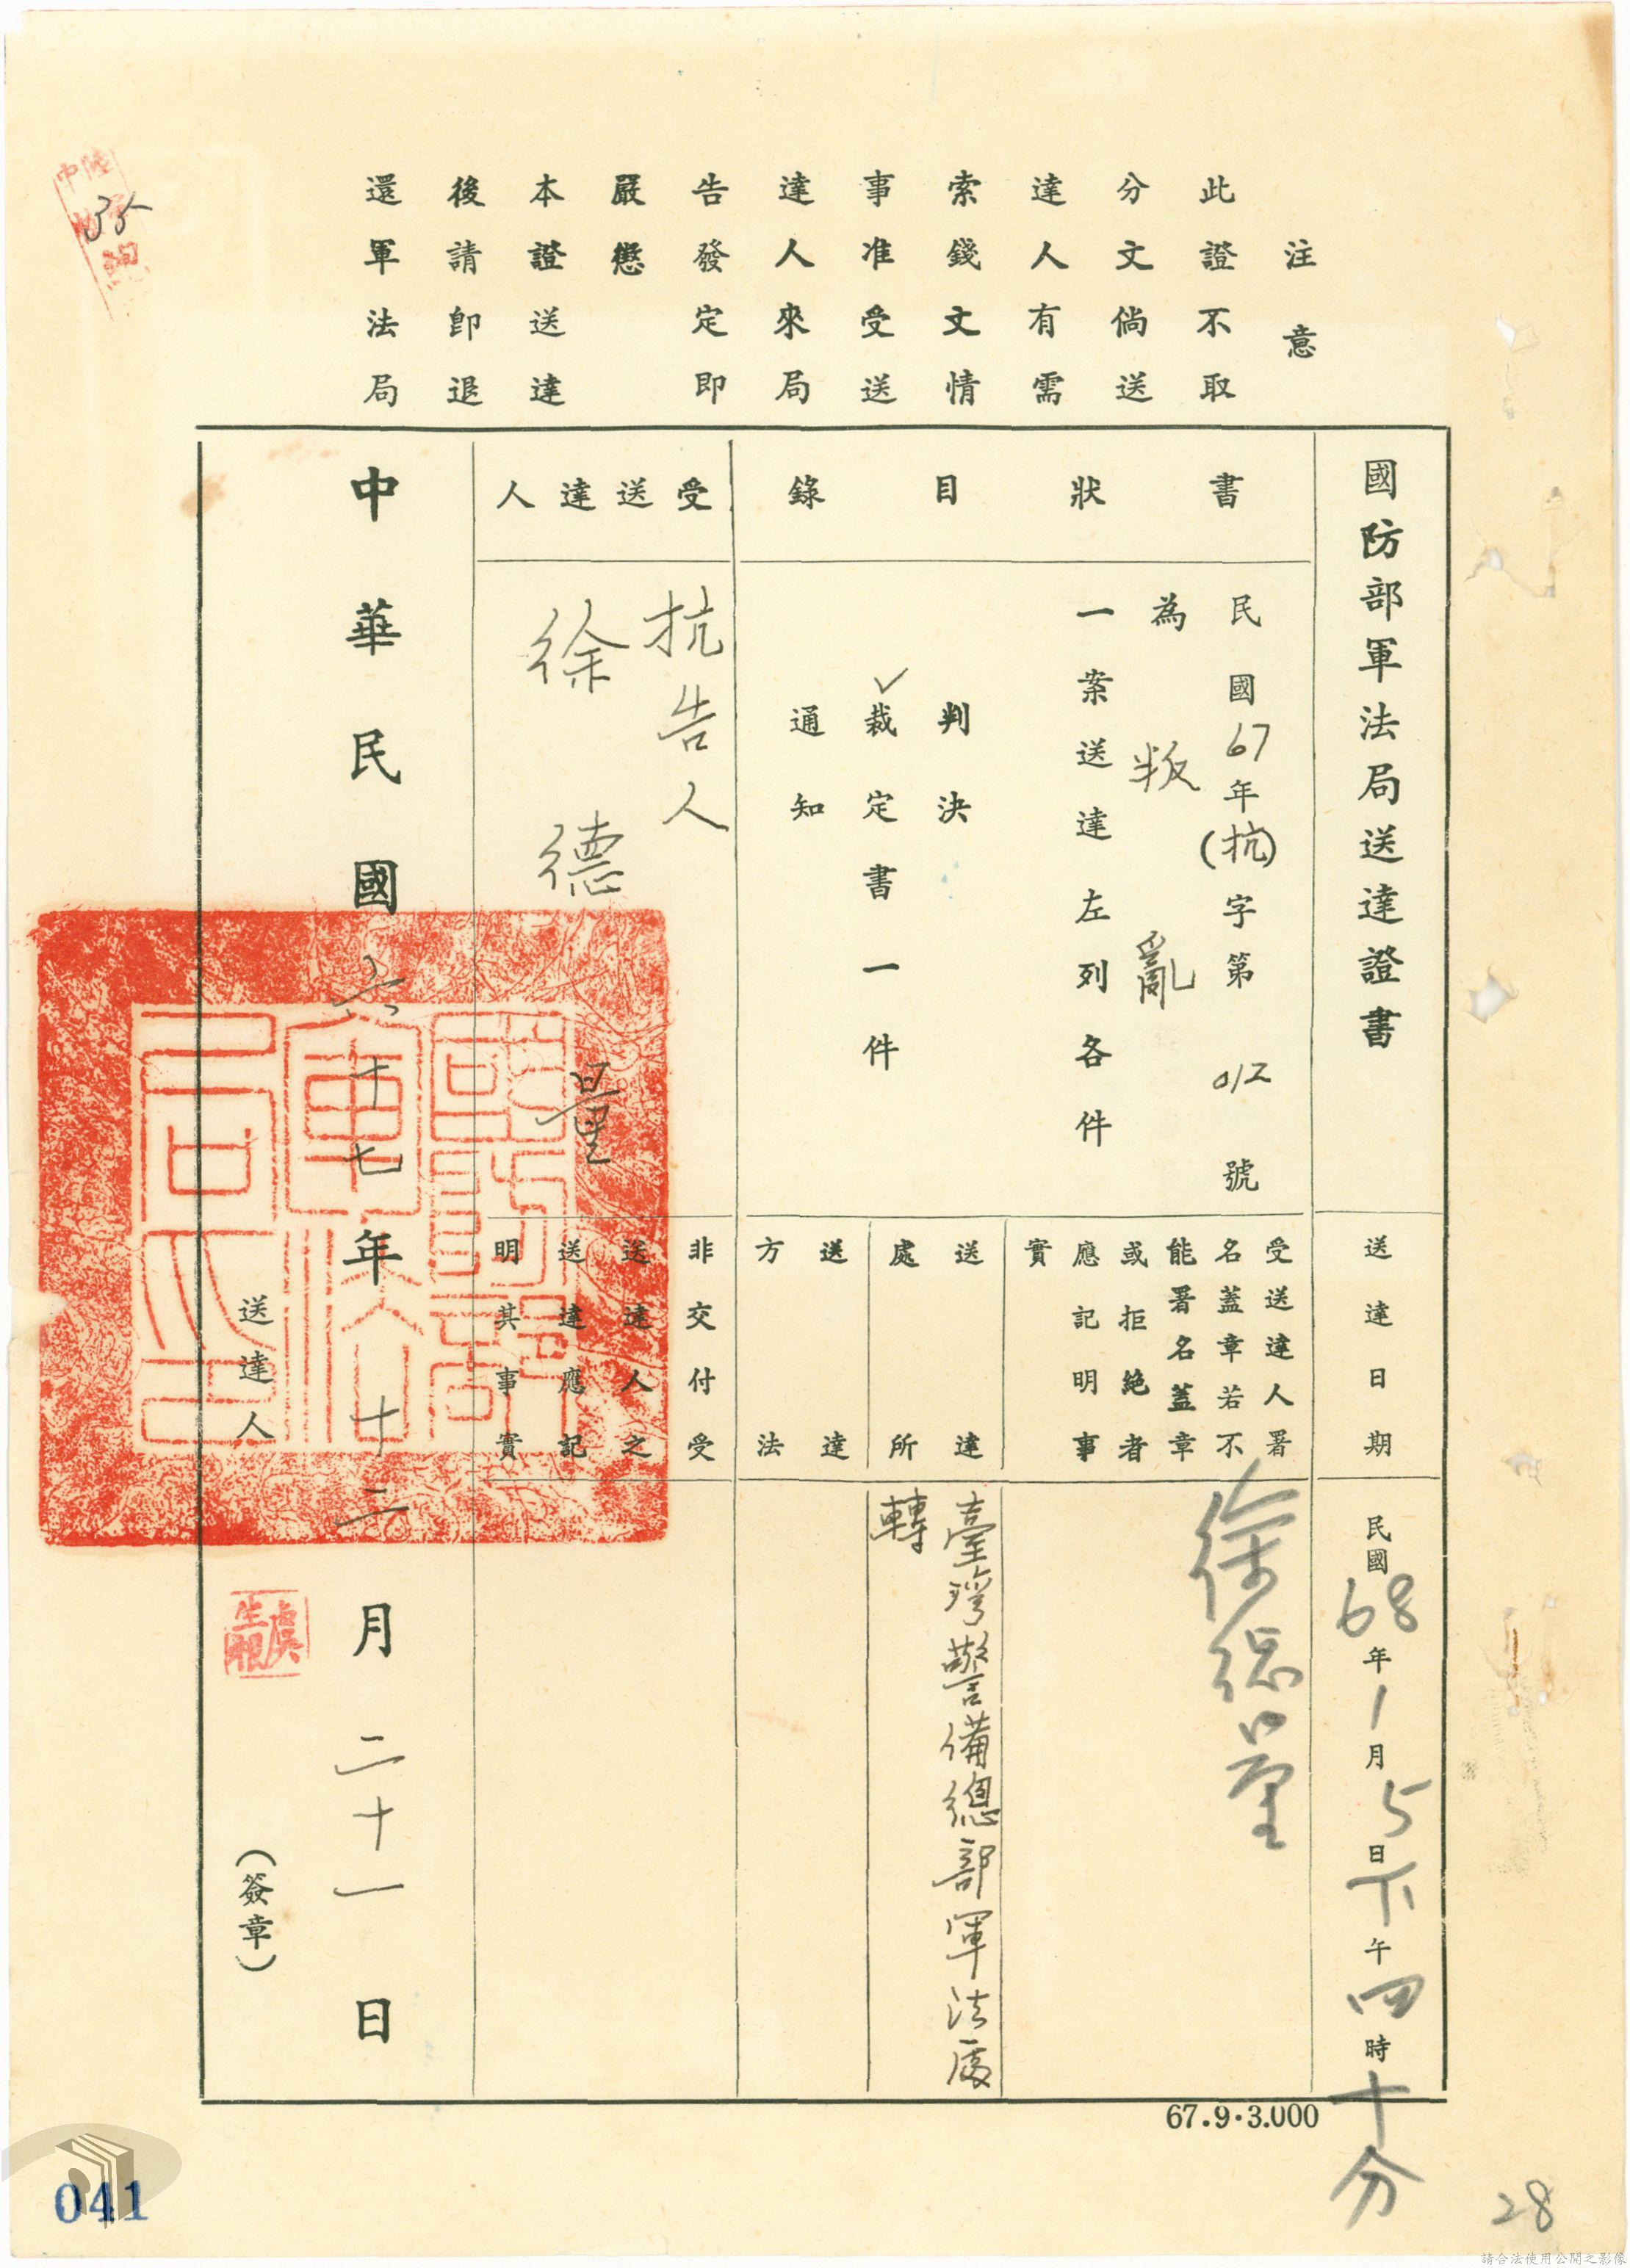 注意
此證不取
分文倘送
達人有需
索錢文情
事准受送
達人來局
告發定即
嚴懲
本證送達
後請即退
還軍法局
國防部軍法局送達證書
書狀目錄
民國67年(抗)字第012號
為叛亂
一案送達左列各件
判決
✓裁定書一件
通知
受送達人
抗告人
徐德量
送達日期
民國68年1月5日下午四時十分
受送達人署
名蓋章若不
能署名蓋章
或拒絕者
應記明事
實
徐德量
送達
處所
臺灣警備總部軍法處
轉
送達
方法
非交付受
送達人之
送達應記
明其事實
中華民國六十七年十二月二十一日
送達人
虞生根
(簽章)
國防部軍法局之印
67.9.3.000
35
041
28
請合法使用公開之影像